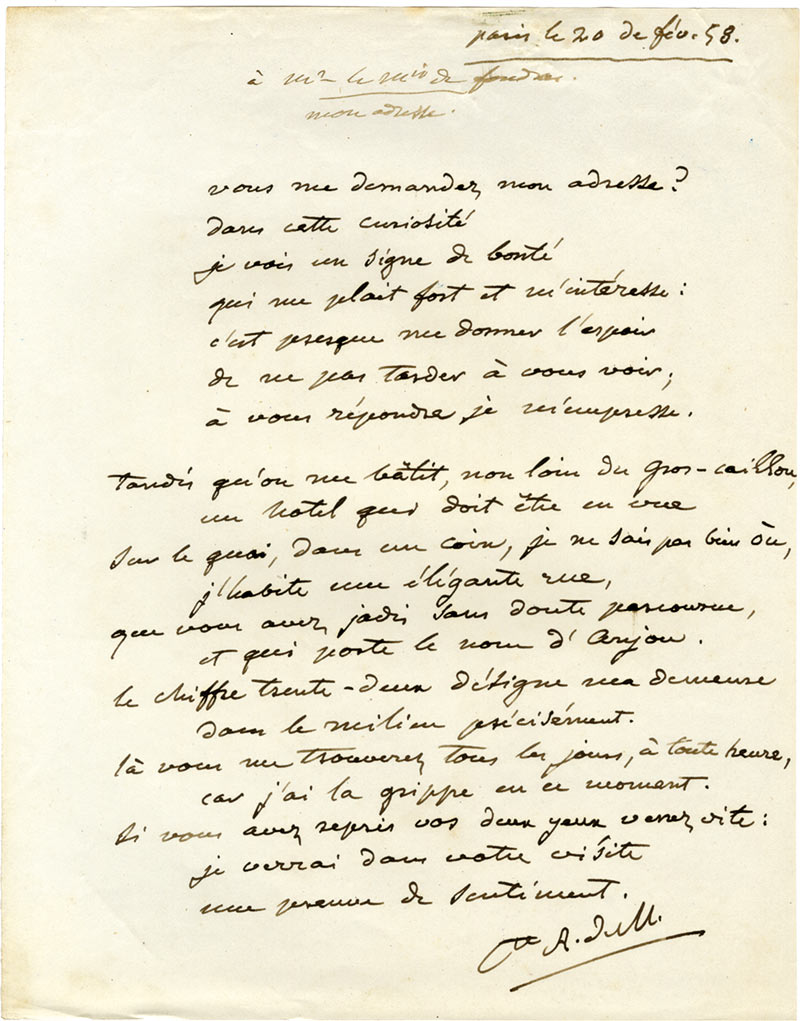 paris le 20 de fév. 58.
à mr le mis de foudras.
mon adresse.
vous me demandez mon adresse?
dans cette curiosité
je vois un signe de bonté
qui me plait fort et m'intéresse:
c'est presque me donner l'espoir
de ne pas tarder à vous voir;
à vous répondre je m'empresse.
tandis qu'on me bâtit, non loin du gros-caillou,
un hotel qui doit être en vue
sur le quai, dans un coin, je ne sais pas bien òu,
j'habite une élégante rue,
que vous avez jadis sans doute parcourue,
et qui porte le nom d'anjou.
le chiffre trente-deux désigne ma demeure
dans le milieu précisément.
là vous me trouverez tous les jours, à toute heure,
car j'ai la grippe en ce moment.
si vous avez repris vos deux yeux venez vite:
je verrai dans votre visite
une preuve de sentiment.
cte A. de M.